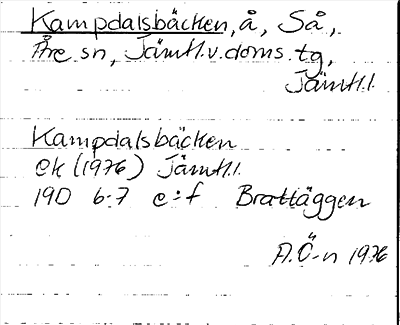 Kampdalsbäcken, å, Så,
Åre sn, Jämtl.v.doms.tg,
Jämtl.l.
Kampdalsbäcken
ek (1976) Jämtl.l.
19D 6:7 e-f Brattäggen
A.Ö-n 1976